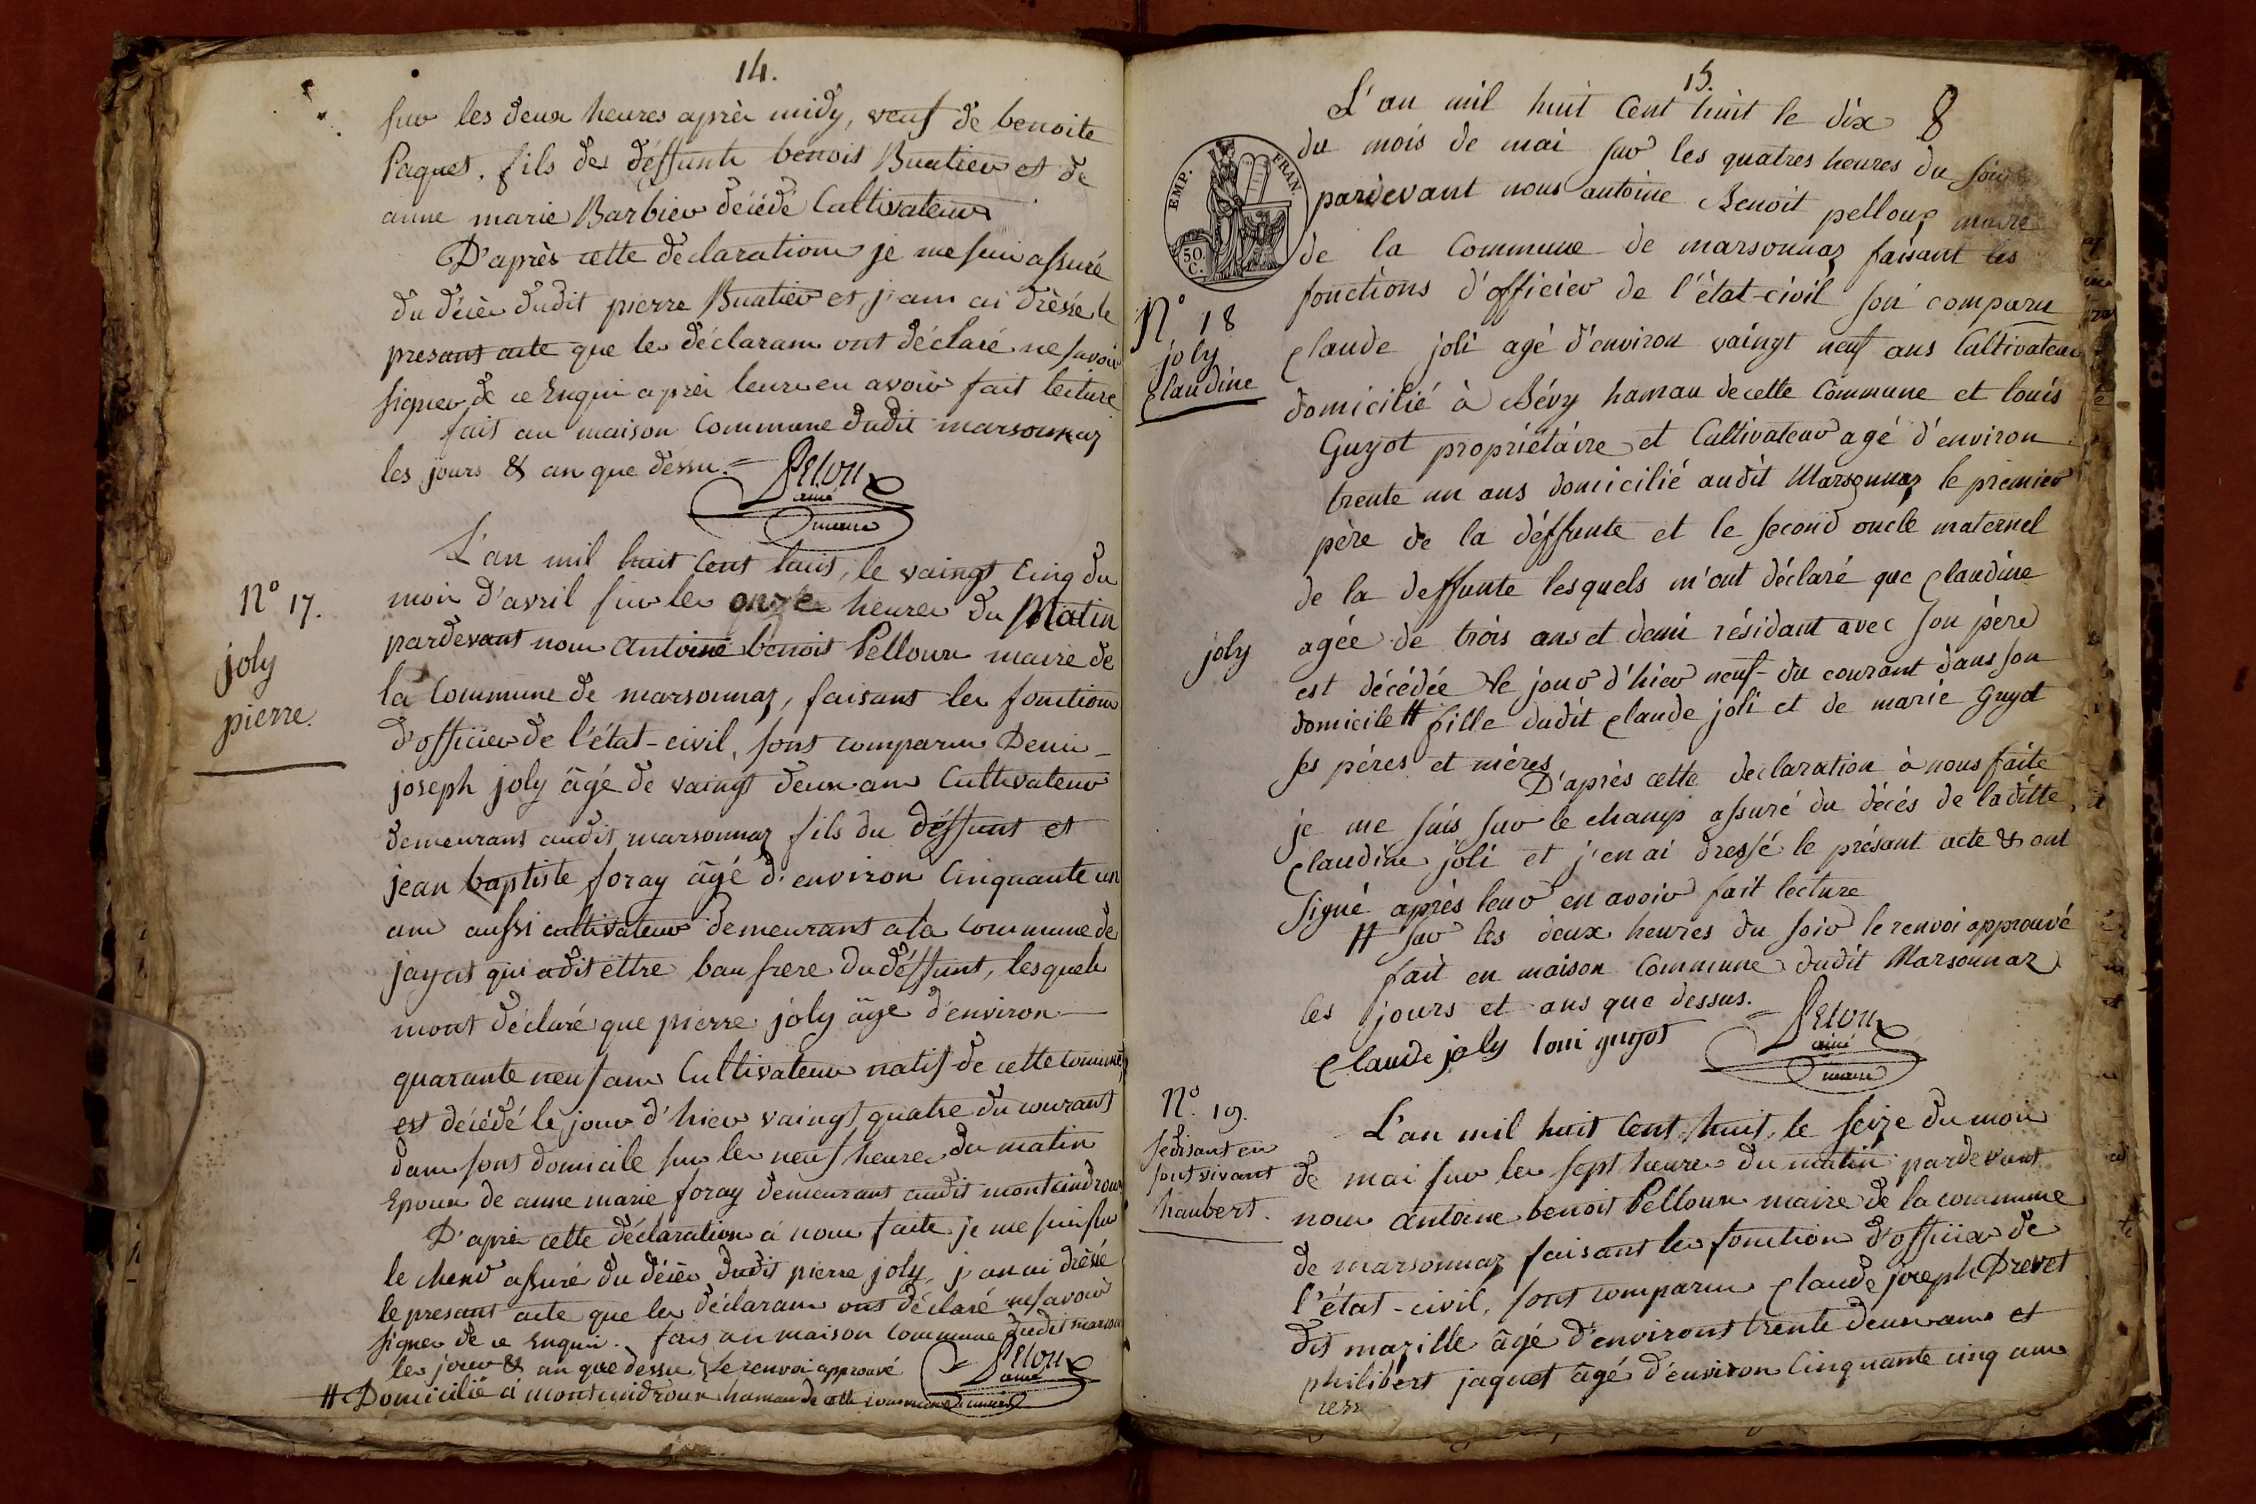 14.
sur les deux heures après midy, veuf de benoite
Paquet. fils des déffunts benois Buatier et de
anne marie Barbier décédé Cultivateur
D'après cette déclaration je me suis assuré
du décès dudit pierre Buatier et j'am ai drèssé le
presant acte que les déclarans ont déclaré ne savoir
signer de ce Enquis après leurs en avoir fait lecture
fait au maison Commune dudit marsonnaz
les jours & an que dessu.
Pelou
ainé
maire
N° 17.
joly
pierre.
L'an mil huit Cent huis, le vaingt Cinq du
mois d'avril sur les onze heures du Matin
pardevant nous Antoine benois Pelloux maire de
la Commune de marsonnaz, faisans les fonctions
d'officier de l'état-civil, sont comparus Denis
joseph joly âgé de vaingt deux ans Cultivateur
demeurans audit marsonnaz fils du déffunt et
jean baptiste foray âgé d'environ Cinquante un
ans aussi cultivateur demeurans a la commune de
jayat qui adit ettre bau frere du déffunt, lesquels
mont déclaré que pierre joly âge d'environ
quarante neuf ans Cultivateur natif de cette commune
est décédé le jour d'hier vaingt quatre du courant
dans sont domicile sur les neuf heures du matin
Epoux de anne marie foray demeurans audit montcindroux
D'après cette déclaration à nous faite je me suis sur
le chend assuré du décès dudit pierre joly, j'an ai drèssé
le presant acte que les déclarans ont déclaré ne savoir
signer de ce Enquis. fais an maison commune dudit marson
les jours & an que dessu Le renvoi approuvé
H Domicilié à montcindroux hamau de cette commune
Pelou
ainé
maire
15.
8
EMP. FRAN.
50. C.
L'an mil huit Cent huit le dix
du mois de mai sur les quatres heures du soir
pardevant nous antoine Benoit pelloux maire
de la Commune de marsonnaz faisant les
fonctions d'officier de l'état-civil son comparu
N° 18
joly
Claudine
Claude joli agé d'environ vaingt neuf ans Cultivateur
domicilié à Bévy hamau de cette Commune et louis
Guyot propriétaire et Cultivateur agé d'environ
trente un ans domicilié audit Marsonnaz le premier
père de la déffunte et le second oncle maternel
de la deffunte lesquels m'ont déclaré que Claudine
joly agée de trois ans et demi résidant avec son père
est décédée le jour d'hier neuf du courant dans son
domicile H fille dudit Claude joli et de marie Guyot
ses péres et méres
D'après cette declaration à nous faite
je me suis sur le champ assuré du décés de la ditte
Claudine joli et j'en ai dressé le présant acte & ont
signé après leur en avoir fait lecture
H sur les deux heures du soir le renvoi approuvé
fait en maison Commune dudit Marsonnaz
les jours et ans que dessus.
Claude joly loui guyot
Pelou
ainé
maire
N° 19.
se disant en
sont vivant
haubert.
L'an mil huit Cent huit, le seize du mois
de mai sur les sept heures du matin pardevant
nous Antoine benois Pelloux maire de la commune
de marsonnaz faisant les fonction d'officier de
l'état-civil, sont comparus Claude joseph Drevet
dit mazille âgé d'environs trente deux ans et
philibert jaquet âgé d'environ Cinquante cinq ans